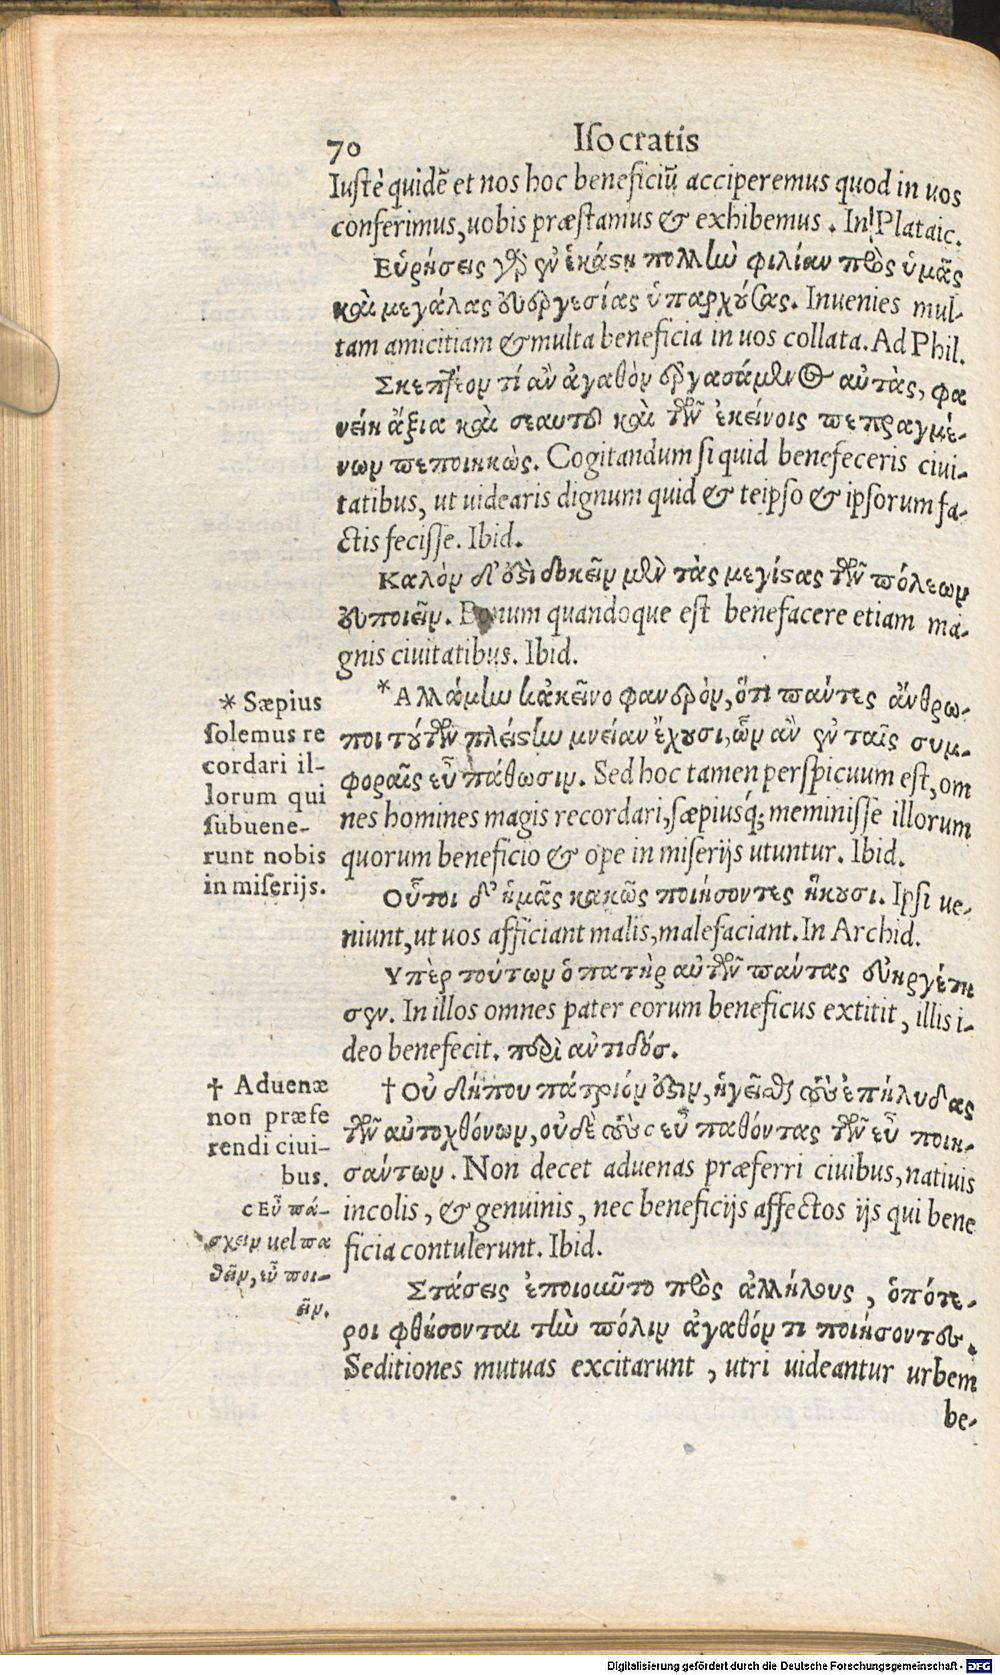 70 Isocratis
Iustè quidẽ et nos hoc beneficiũ acciperemus quod in uos
conferimus, uobis præstamus & exhibemus. In Plataic.
Εὑρήσεις γὰρ ἐν ἑκάστῃ πολλὴν φιλίαν πρὸς ὑμᾶς
καὶ μεγάλας εὐεργεσίας ὑπαρχούσας. Inuenies mul-
tam amicitiam & multa beneficia in uos collata. Ad Phil.
Σκεπτέον τί ἂν ἀγαθὸν ἐργασάμενος αὐτὰς, φα
νείη ἄξια καὶ σεαυτοῦ καὶ τῶν ἐκείνοις πεπραγμέ-
νων πεποιηκὼς. Cogitandum si quid benefeceris ciui-
tatibus, ut uidearis dignum quid & teipso & ipsorum fa-
ctis fecisse. Ibid.
Καλὸν δ' ἐστὶ δοκεῖν μὲν τὰς μεγίστας τῶν πόλεων
εὐποιεῖν. Bonum quandoque est benefacere etiam ma-
gnis ciuitatibus. Ibid.
* Ἀλλὰ μὴν κἀκεῖνο φανερὸν, ὅτι πάντες ἄνθρω-
ποι τούτων πλείστην μνείαν ἔχουσι, ὧν ἂν ἐν ταῖς συμ-
φοραῖς εὖ πάθωσιν. Sed hoc tamen perspicuum est, om
nes homines magis recordari, sæpiusq́; meminisse illorum
quorum beneficio & ope in miserijs utuntur. Ibid.
Οὗτοι δ' ἡμᾶς κακῶς ποιήσοντες ἥκουσι. Ipsi ue-
niunt, ut uos afficiant malis, malefaciant. In Archid.
Υπὲρ τούτων ὁ πατὴρ αὐτῶν πάντας εὐηργέτη
σεν. In illos omnes pater eorum beneficus extitit, illis i-
deo benefecit. περὶ ἀντιδόσ.
† Οὐ δήπου πάτριόν ἐστιν, ἡγεῖσθαι τοὺς ἐπήλυδας
τῶν αὐτοχθόνων, οὐδὲ τοὺς c εὖ παθόντας τῶν εὖ ποιη-
σάντων. Non decet aduenas præferri ciuibus, natiuis
incolis, & genuinis, nec beneficijs affectos ijs qui bene
ficia contulerunt. Ibid.
Στάσεις ἐποιοῦντο πρὸς ἀλλήλους, ὁπότε-
ροι φθήσονται τὴν πόλιν ἀγαθόν τι ποιήσοντες.
Seditiones mutuas excitarunt, utri uideantur urbem
be-
* Sæpius
solemus re
cordari il-
lorum qui
subuene-
runt nobis
in miserijs.
† Aduenæ
non præfe
rendi ciui-
bus.
c Εὖ πά-
σχειν uel πα
θεῖν, εὖ ποι-
εῖν.
Digitalisierung gefördert durch die Deutsche Forschungsgemeinschaft - DFG